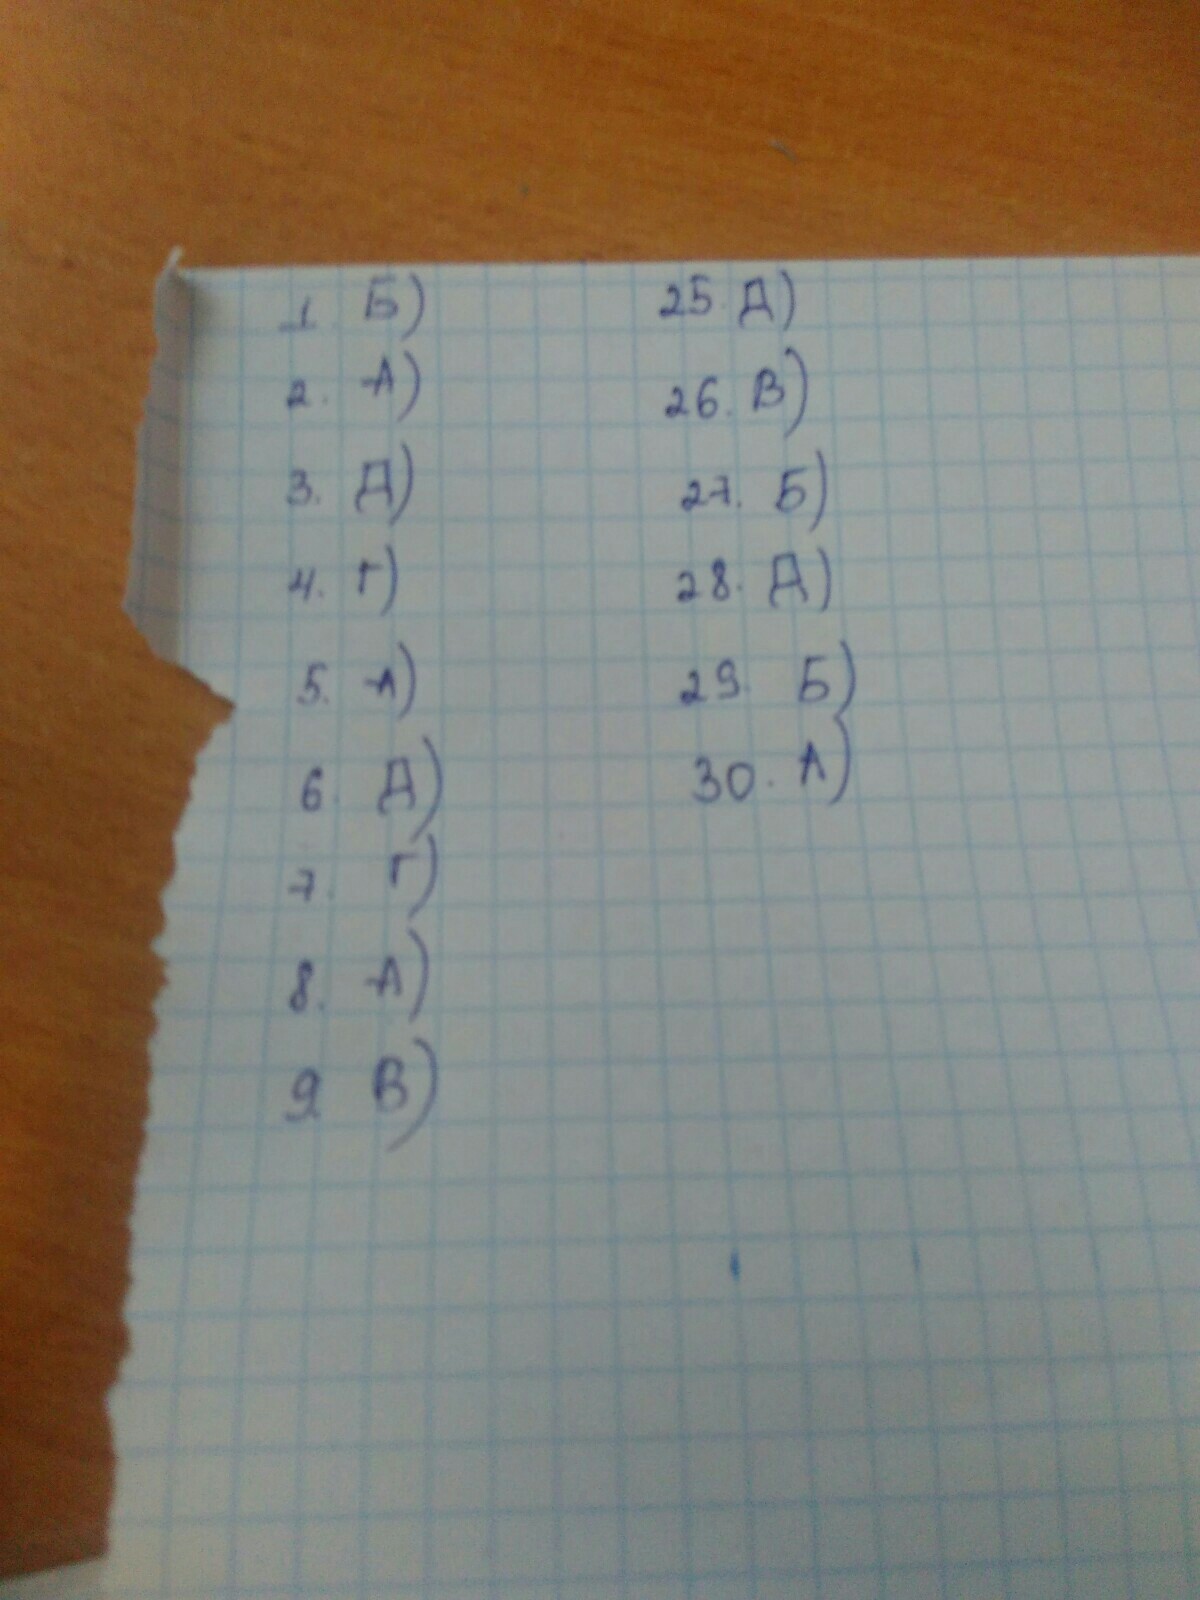 1 Б)
2. А)
3. Д)
4. Г)
5. А)
6. Д)
7. Г)
8. А)
9 В)
25. Д)
26. В)
27. Б)
28. Д)
29. Б)
30. А)